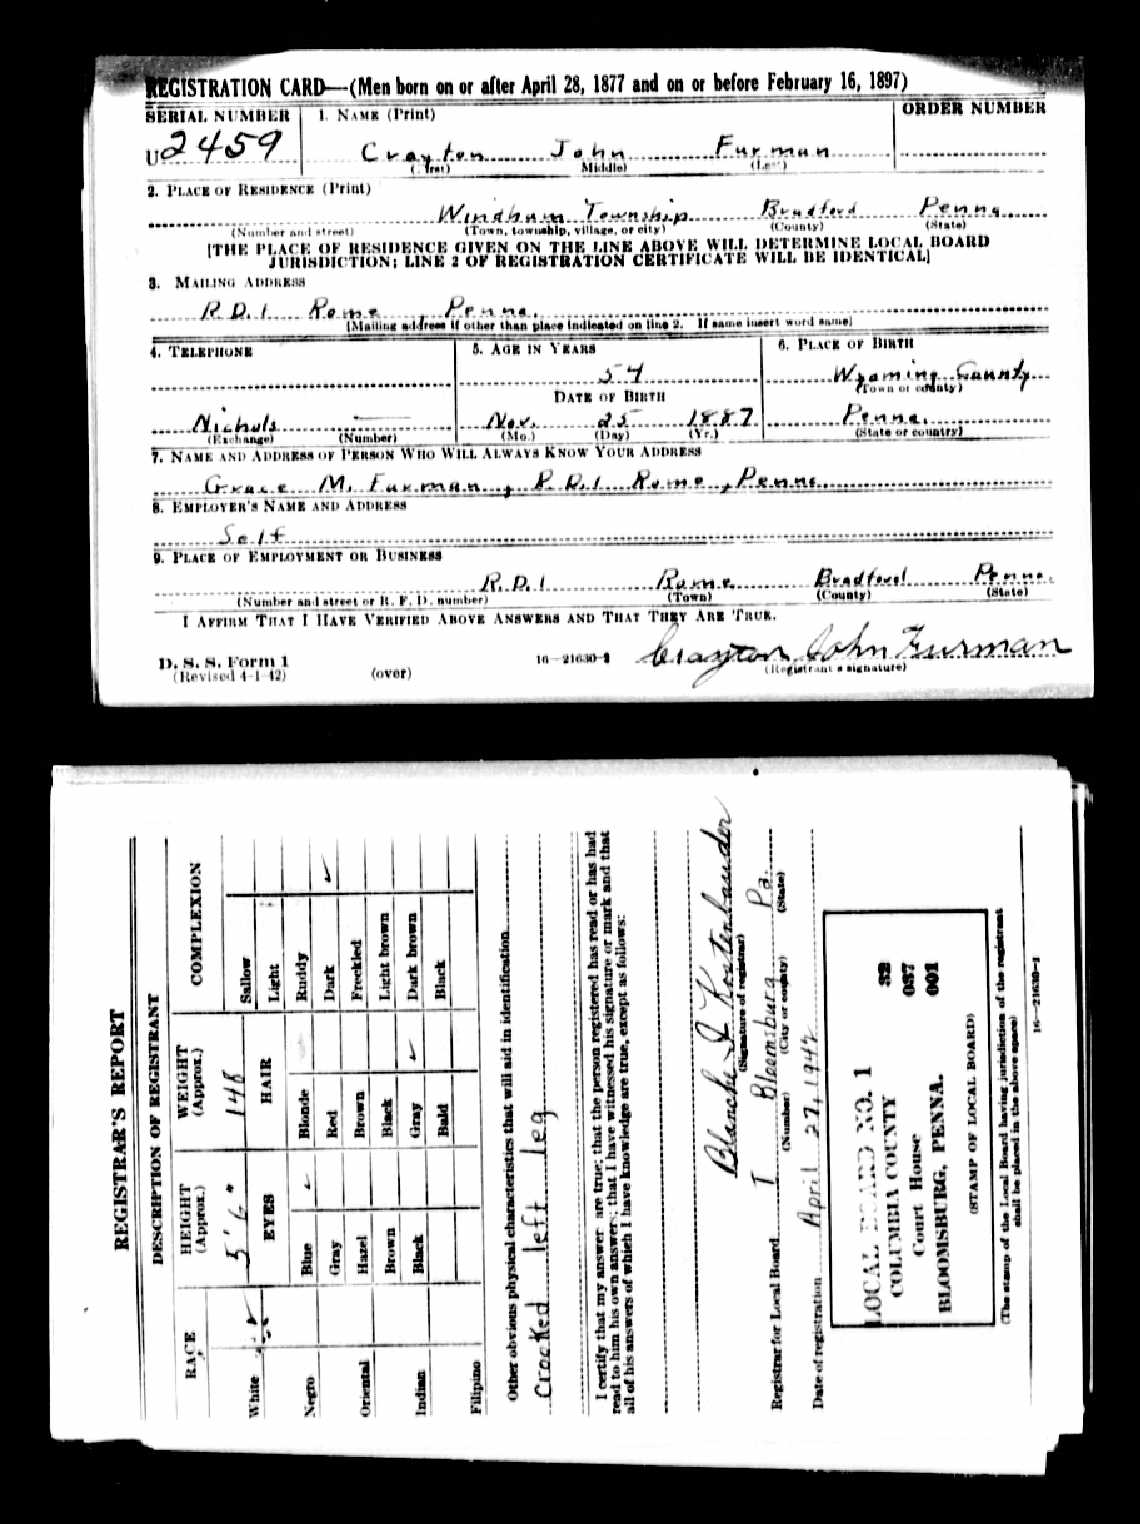 REGISTRATION CARD—(Men born on or after April 28, 1877 and on or before February 16, 1897)
SERIAL NUMBER 1. NAME (Print) ORDER NUMBER
U 2459 Crayton John Furman
(First) (Middle) (Last)
2. PLACE OF RESIDENCE (Print)
Windham Township Bradford Penna
(Number and street) (Town, township, village, or city) (County) (State)
[THE PLACE OF RESIDENCE GIVEN ON THE LINE ABOVE WILL DETERMINE LOCAL BOARD
JURISDICTION; LINE 2 OF REGISTRATION CERTIFICATE WILL BE IDENTICAL]
3. MAILING ADDRESS
R.D.1 Rome, Penna.
[Mailing address if other than place indicated on line 2. If same insert word same]
4. TELEPHONE 5. AGE IN YEARS 6. PLACE OF BIRTH
54 Wyoming County
DATE OF BIRTH (Town or county)
Nichols — Nov. 25 1887 Penna.
(Exchange) (Number) (Mo.) (Day) (Yr.) (State or country)
7. NAME AND ADDRESS OF PERSON WHO WILL ALWAYS KNOW YOUR ADDRESS
Grace M. Furman, R.D.1 Rome, Penna
8. EMPLOYER'S NAME AND ADDRESS
Self
9. PLACE OF EMPLOYMENT OR BUSINESS
R.D.1 Rome Bradford Penna.
(Number and street or R. F. D. number) (Town) (County) (State)
I AFFIRM THAT I HAVE VERIFIED ABOVE ANSWERS AND THAT THEY ARE TRUE.
Crayton John Furman
D. S. S. Form 1 16—21630-1 (Registrant's signature)
(Revised 4-1-42) (over)
REGISTRAR'S REPORT
DESCRIPTION OF REGISTRANT
RACE HEIGHT (Approx.) WEIGHT (Approx.) COMPLEXION
5' 6" 148
White ✓ EYES HAIR Sallow
Light
Negro Blue ✓ Blonde Ruddy
Gray Red Dark ✓
Oriental Hazel Brown Freckled
Brown Black Light brown
Indian Black Gray ✓ Dark brown
Bald Black
Filipino
Other obvious physical characteristics that will aid in identification
Crooked left leg
I certify that my answers are true; that the person registered has read or has had
read to him his own answers; that I have witnessed his signature or mark and that
all of his answers of which I have knowledge are true, except as follows:
Blanche I Kostenbauder
(Signature of registrar)
Registrar for Local Board 1 Bloomsburg Pa.
(Number) (City or county) (State)
Date of registration April 27, 1942
LOCAL BOARD NO. 1 32
COLUMBIA COUNTY 037
Court House 001
BLOOMSBURG, PENNA.
(STAMP OF LOCAL BOARD)
(The stamp of the Local Board having jurisdiction of the registrant
shall be placed in the above space)
16—21630-1